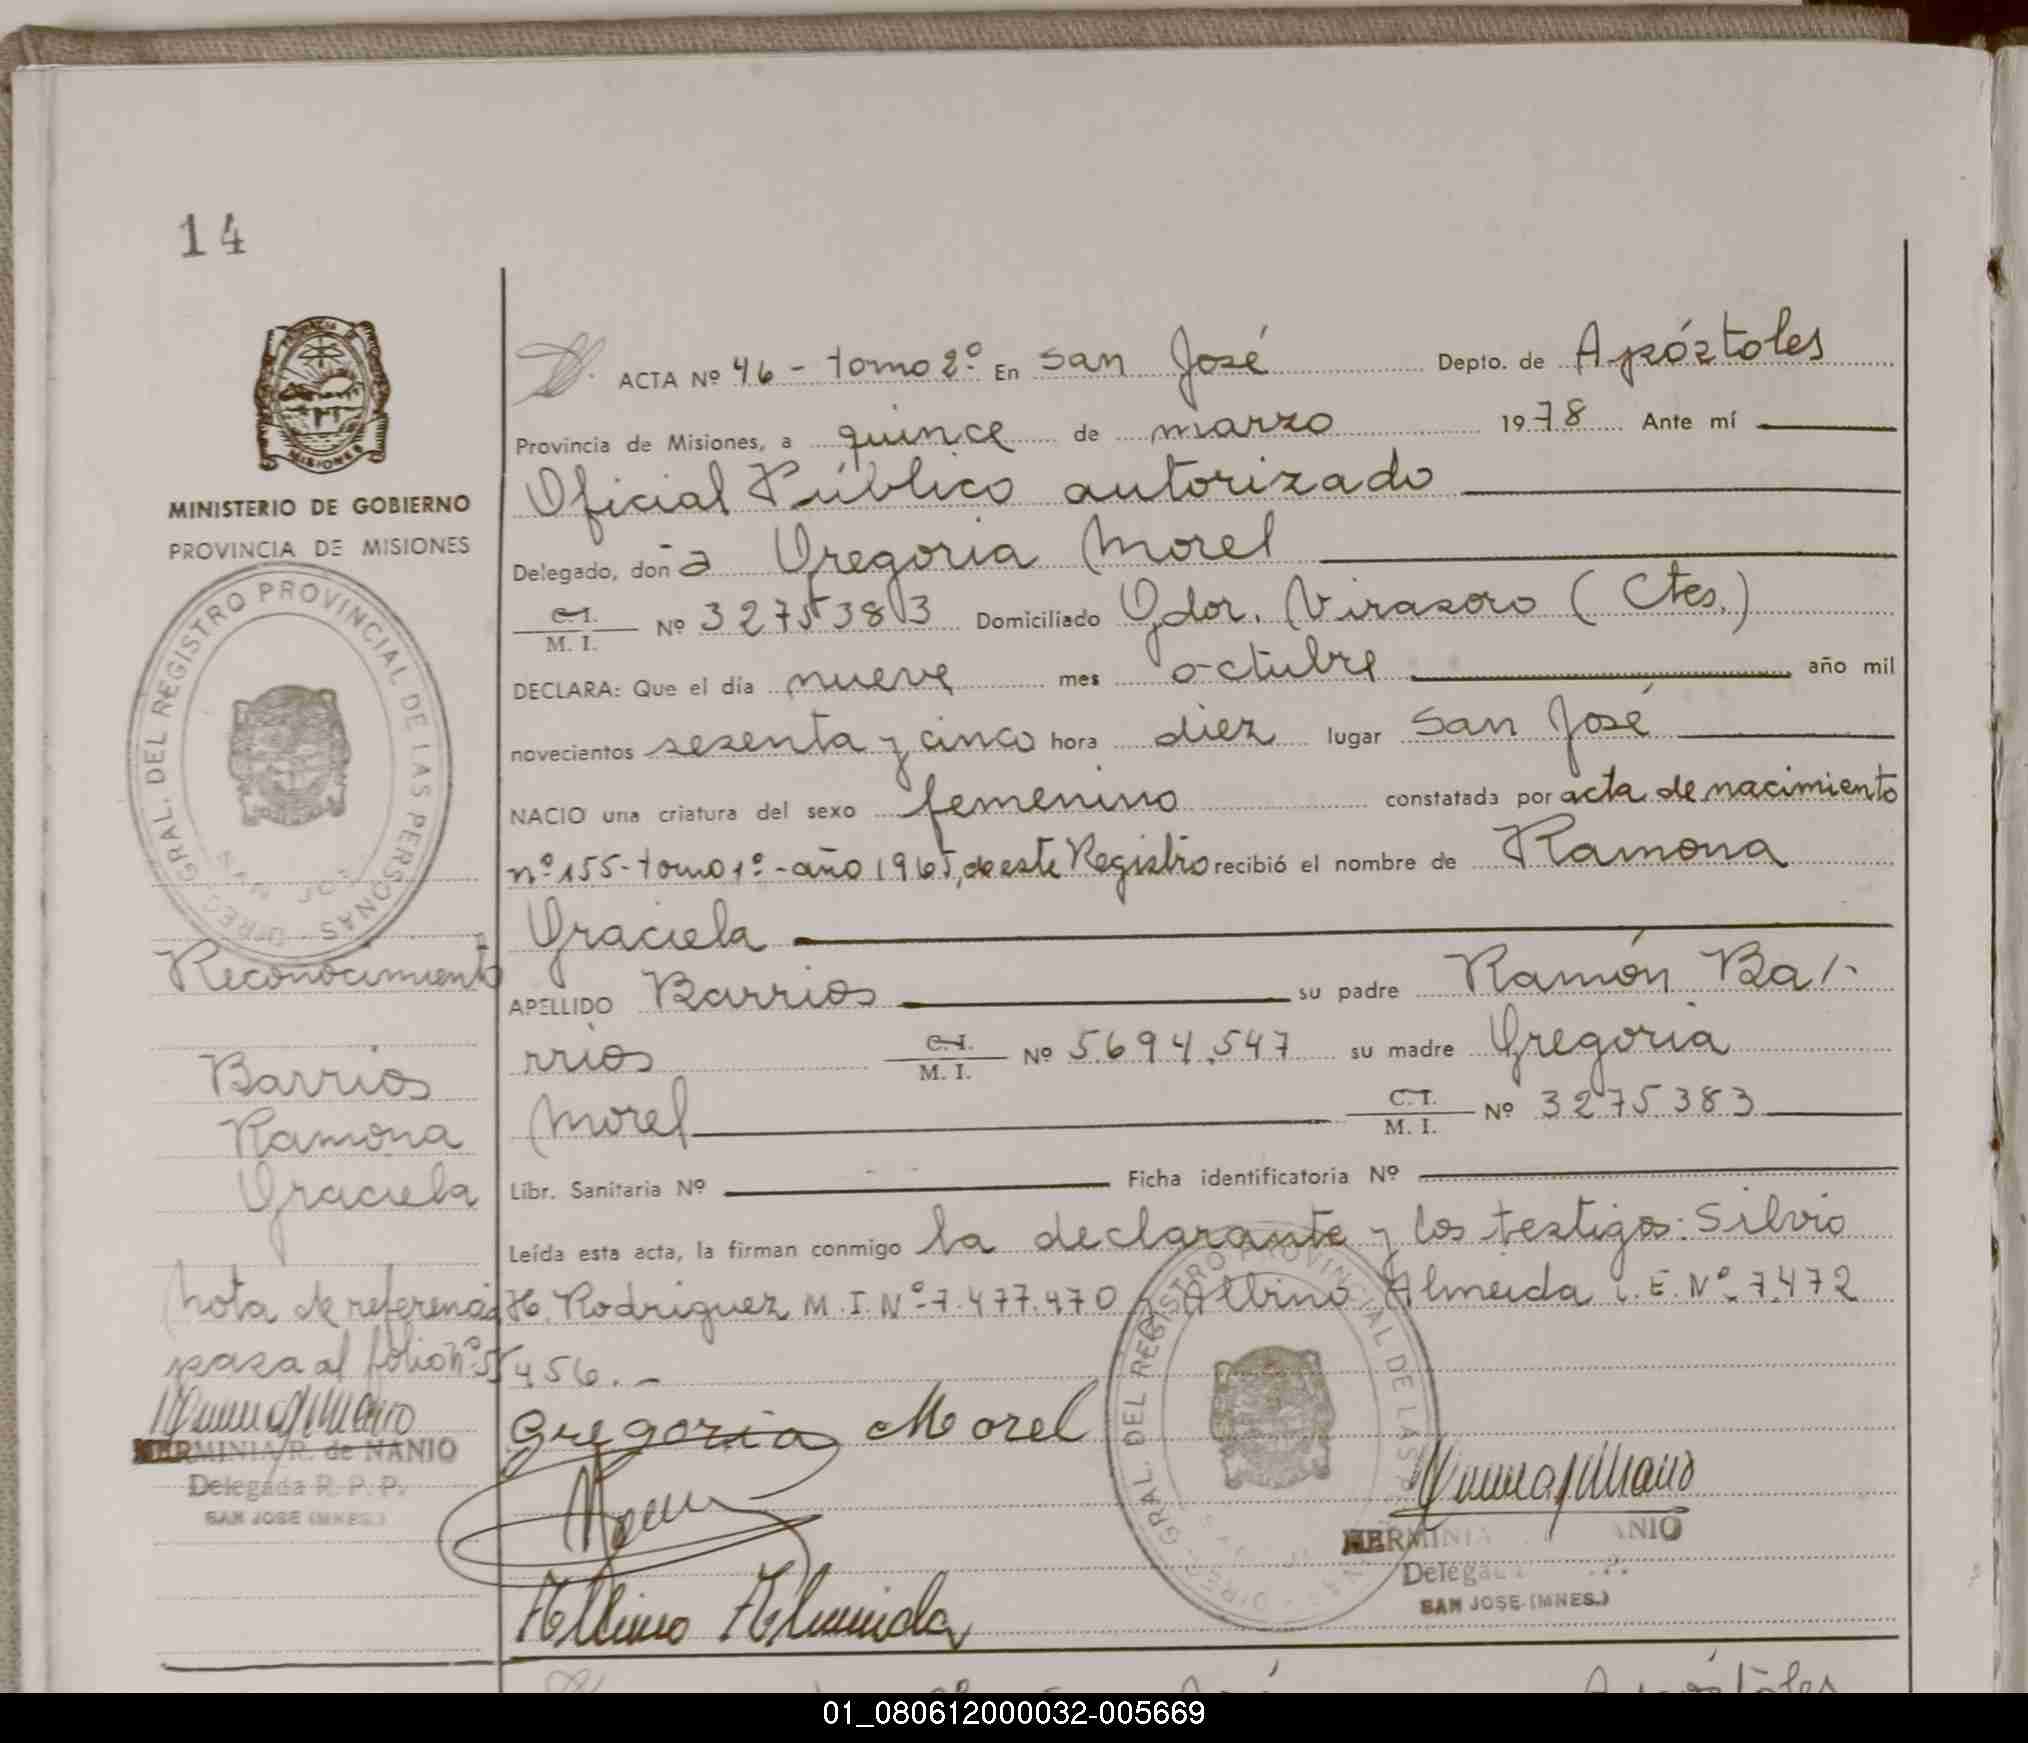 14
MINISTERIO DE GOBIERNO
PROVINCIA DE MISIONES
DIREC. GRAL. DEL REGISTRO PROVINCIAL DE LAS PERSONAS
SAN JOSE
Reconocimiento
Barrios
Ramona
Graciela
Nota de referencia
pasa al folio nº 5
HERMINIA R. de NANIO
Delegada R. P. P.
SAN JOSE (MNES.)
ACTA Nº 46 - tomo 2º En San José Depto. de Apóstoles
Provincia de Misiones, a quince de marzo 1978 Ante mí
Oficial Público autorizado
Delegado, doña Gregoria Morel
C. I. / M. I. Nº 3275383 Domiciliado Gdor. Virasoro (Ctes.)
DECLARA: Que el día nueve mes octubre año mil
novecientos sesenta y cinco hora diez lugar San José
NACIO una criatura del sexo femenino constatada por acta de nacimiento
nº 155 - tomo 1º - año 1965, de este Registro recibió el nombre de Ramona
Graciela
APELLIDO Barrios su padre Ramón Ba/-
rrios C. I. / M. I. Nº 5694.547 su madre Gregoria
Morel C. I. / M. I. Nº 3275383
Libr. Sanitaria Nº Ficha identificatoria Nº
Leída esta acta, la firman conmigo la declarante y los testigos: Silvio
H. Rodriguez M. I. Nº 7.477.470 y Albino Almeida L. E. Nº 7.472
456. -
Gregoria Morel
Albino Almeida
DIREC. GRAL. DEL REGISTRO PROVINCIAL DE LAS
HERMINIA NANIO
Delegada
SAN JOSE (MNES.)
San José Apóstoles
01_080612000032-005669